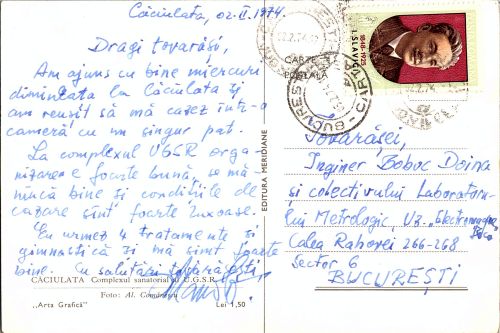 Căciulata, 02.II.1974.
Dragi tovarăși,
Am ajuns cu bine miercuri
dimineața la Căciulata și
am reușit să mă cazez într-o
cameră cu un singur pat.
La complexul UGSR orga
nizarea e foarte bună, se mă
nîncă bine și condițiile de
cazare sînt foarte luxoase.
Eu urmez 4 tratamente și
gimnastică și mă simt foarte
bine. Cu salutări tovărășești,
CĂCIULATA Complexul sanatorial U.G.S.R.
Foto: Al.
„Arta Grafică”
Lei 1,50
EDITURA MERIDIANE
CARTE
POȘTALĂ
1848-1925
I. SLAVICI
BUCUREȘTI
Tovarășei,
Inginer Boboc Doina
și colectivului Laborato-
lui Metrologic, Uz. „Electromagne
Calea Rahovei 266-268
Sector 6
BUCUREȘTI